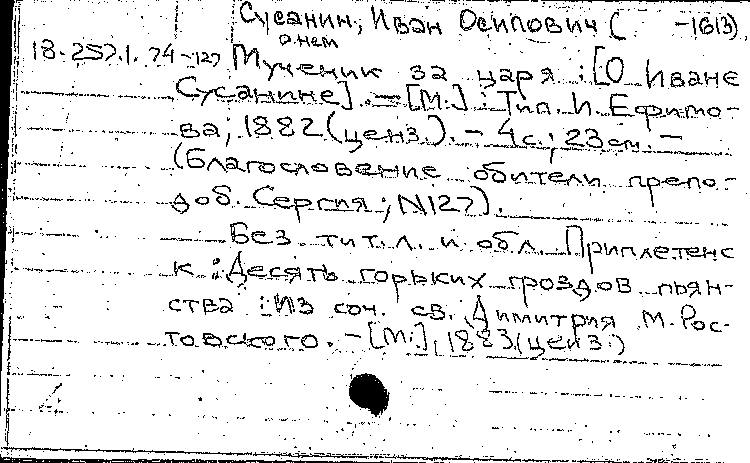 Сусанин, Иван Осипович ( -1613),
о нем
18.257.1.74-127 Мученик за царя : [О Иване
Сусанине]. - [М.] : Тип. И. Ефимо-
ва, 1882 (ценз.). - 4с.; 23см. -
(Благословение обители препо-
доб. Сергия ; N127).
Без тит. л. и обл. Приплетенс
к : Десять горьких гроздов пьян-
ства : Из соч. св. Димитрия М. Рос-
товского. - [М.], 1883 (ценз.)